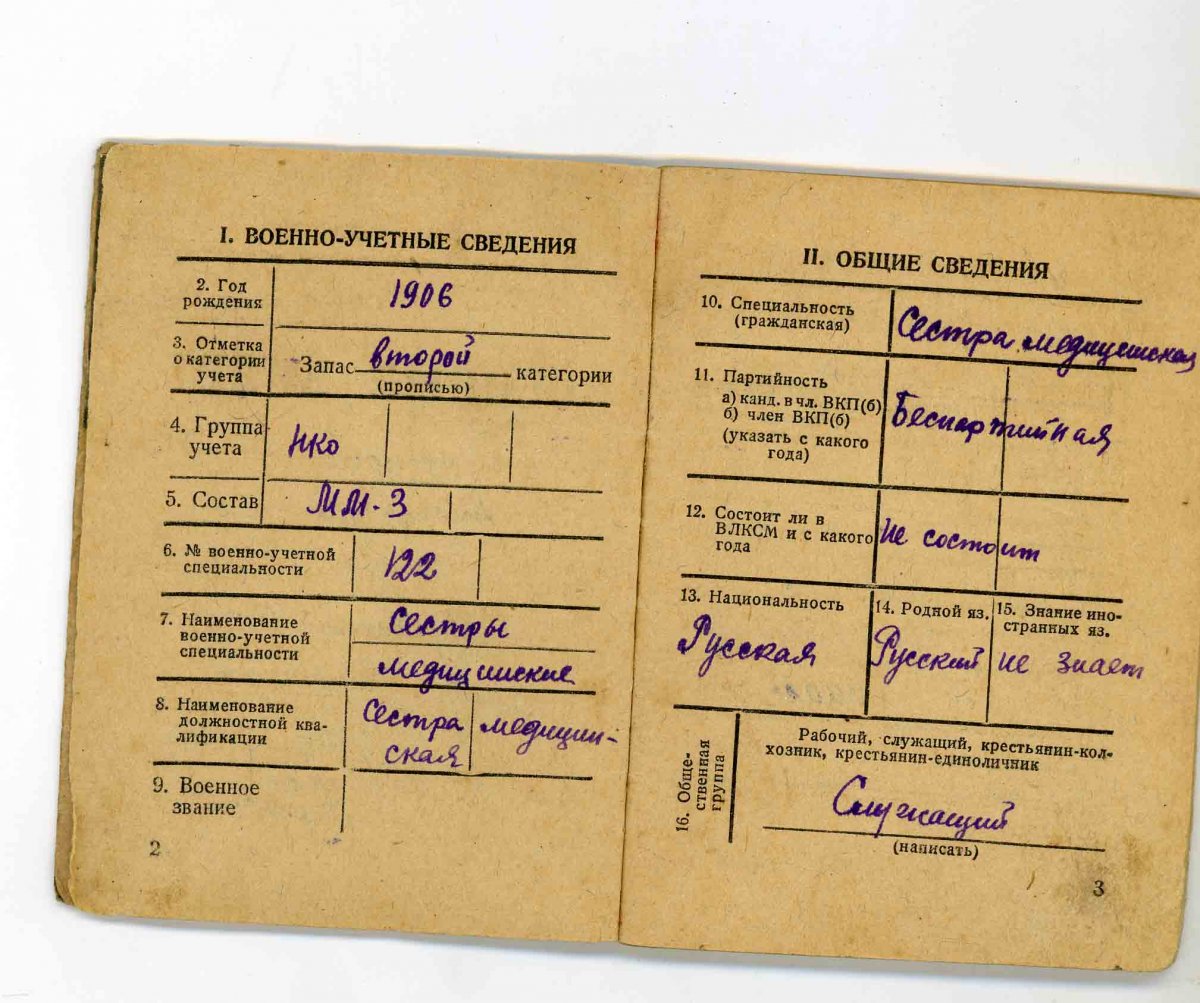 I. ВОЕННО-УЧЕТНЫЕ СВЕДЕНИЯ
2. Год
рождения
1906
3. Отметка
о категории
учета
Запас второй категории
(прописью)
4. Группа
учета
НКО
5. Состав
ММ-3
6. № военно-учетной
специальности
122
7. Наименование
военно-учетной
специальности
Сестры
медицинские
8. Наименование
должностной ква-
лификации
Сестра медицин-
ская
9. Военное
звание
2
II. ОБЩИЕ СВЕДЕНИЯ
10. Специальность
(гражданская)
Сестра медицинская
11. Партийность
а) канд. в чл. ВКП(б)
б) член ВКП(б)
(указать с какого
года)
Беспартийная
12. Состоит ли в
ВЛКСМ и с какого
года
Не состоит
13. Национальность
Русская
14. Родной яз.
Русский
15. Знание ино-
странных яз.
не знает
16. Обще-
ственная
группа
Рабочий, служащий, крестьянин-кол-
хозник, крестьянин-единоличник
Служащий
(написать)
3